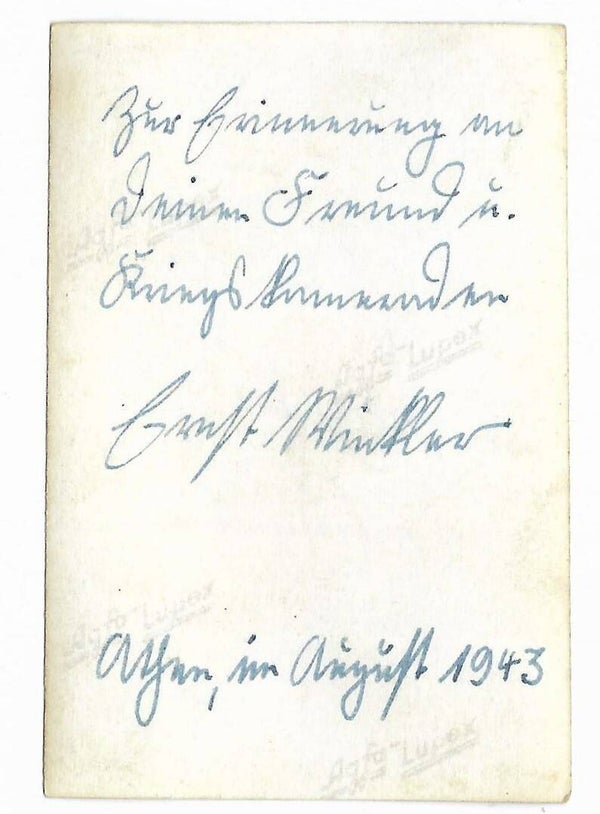 Zur Erinnerung an
Deinen Freund u.
Kriegskameraden
Ernst Winkler
Athen, im August 1943
Agfa-Lupex
Agfa-Lupex
Agfa-Lupex
Agfa-Lupex